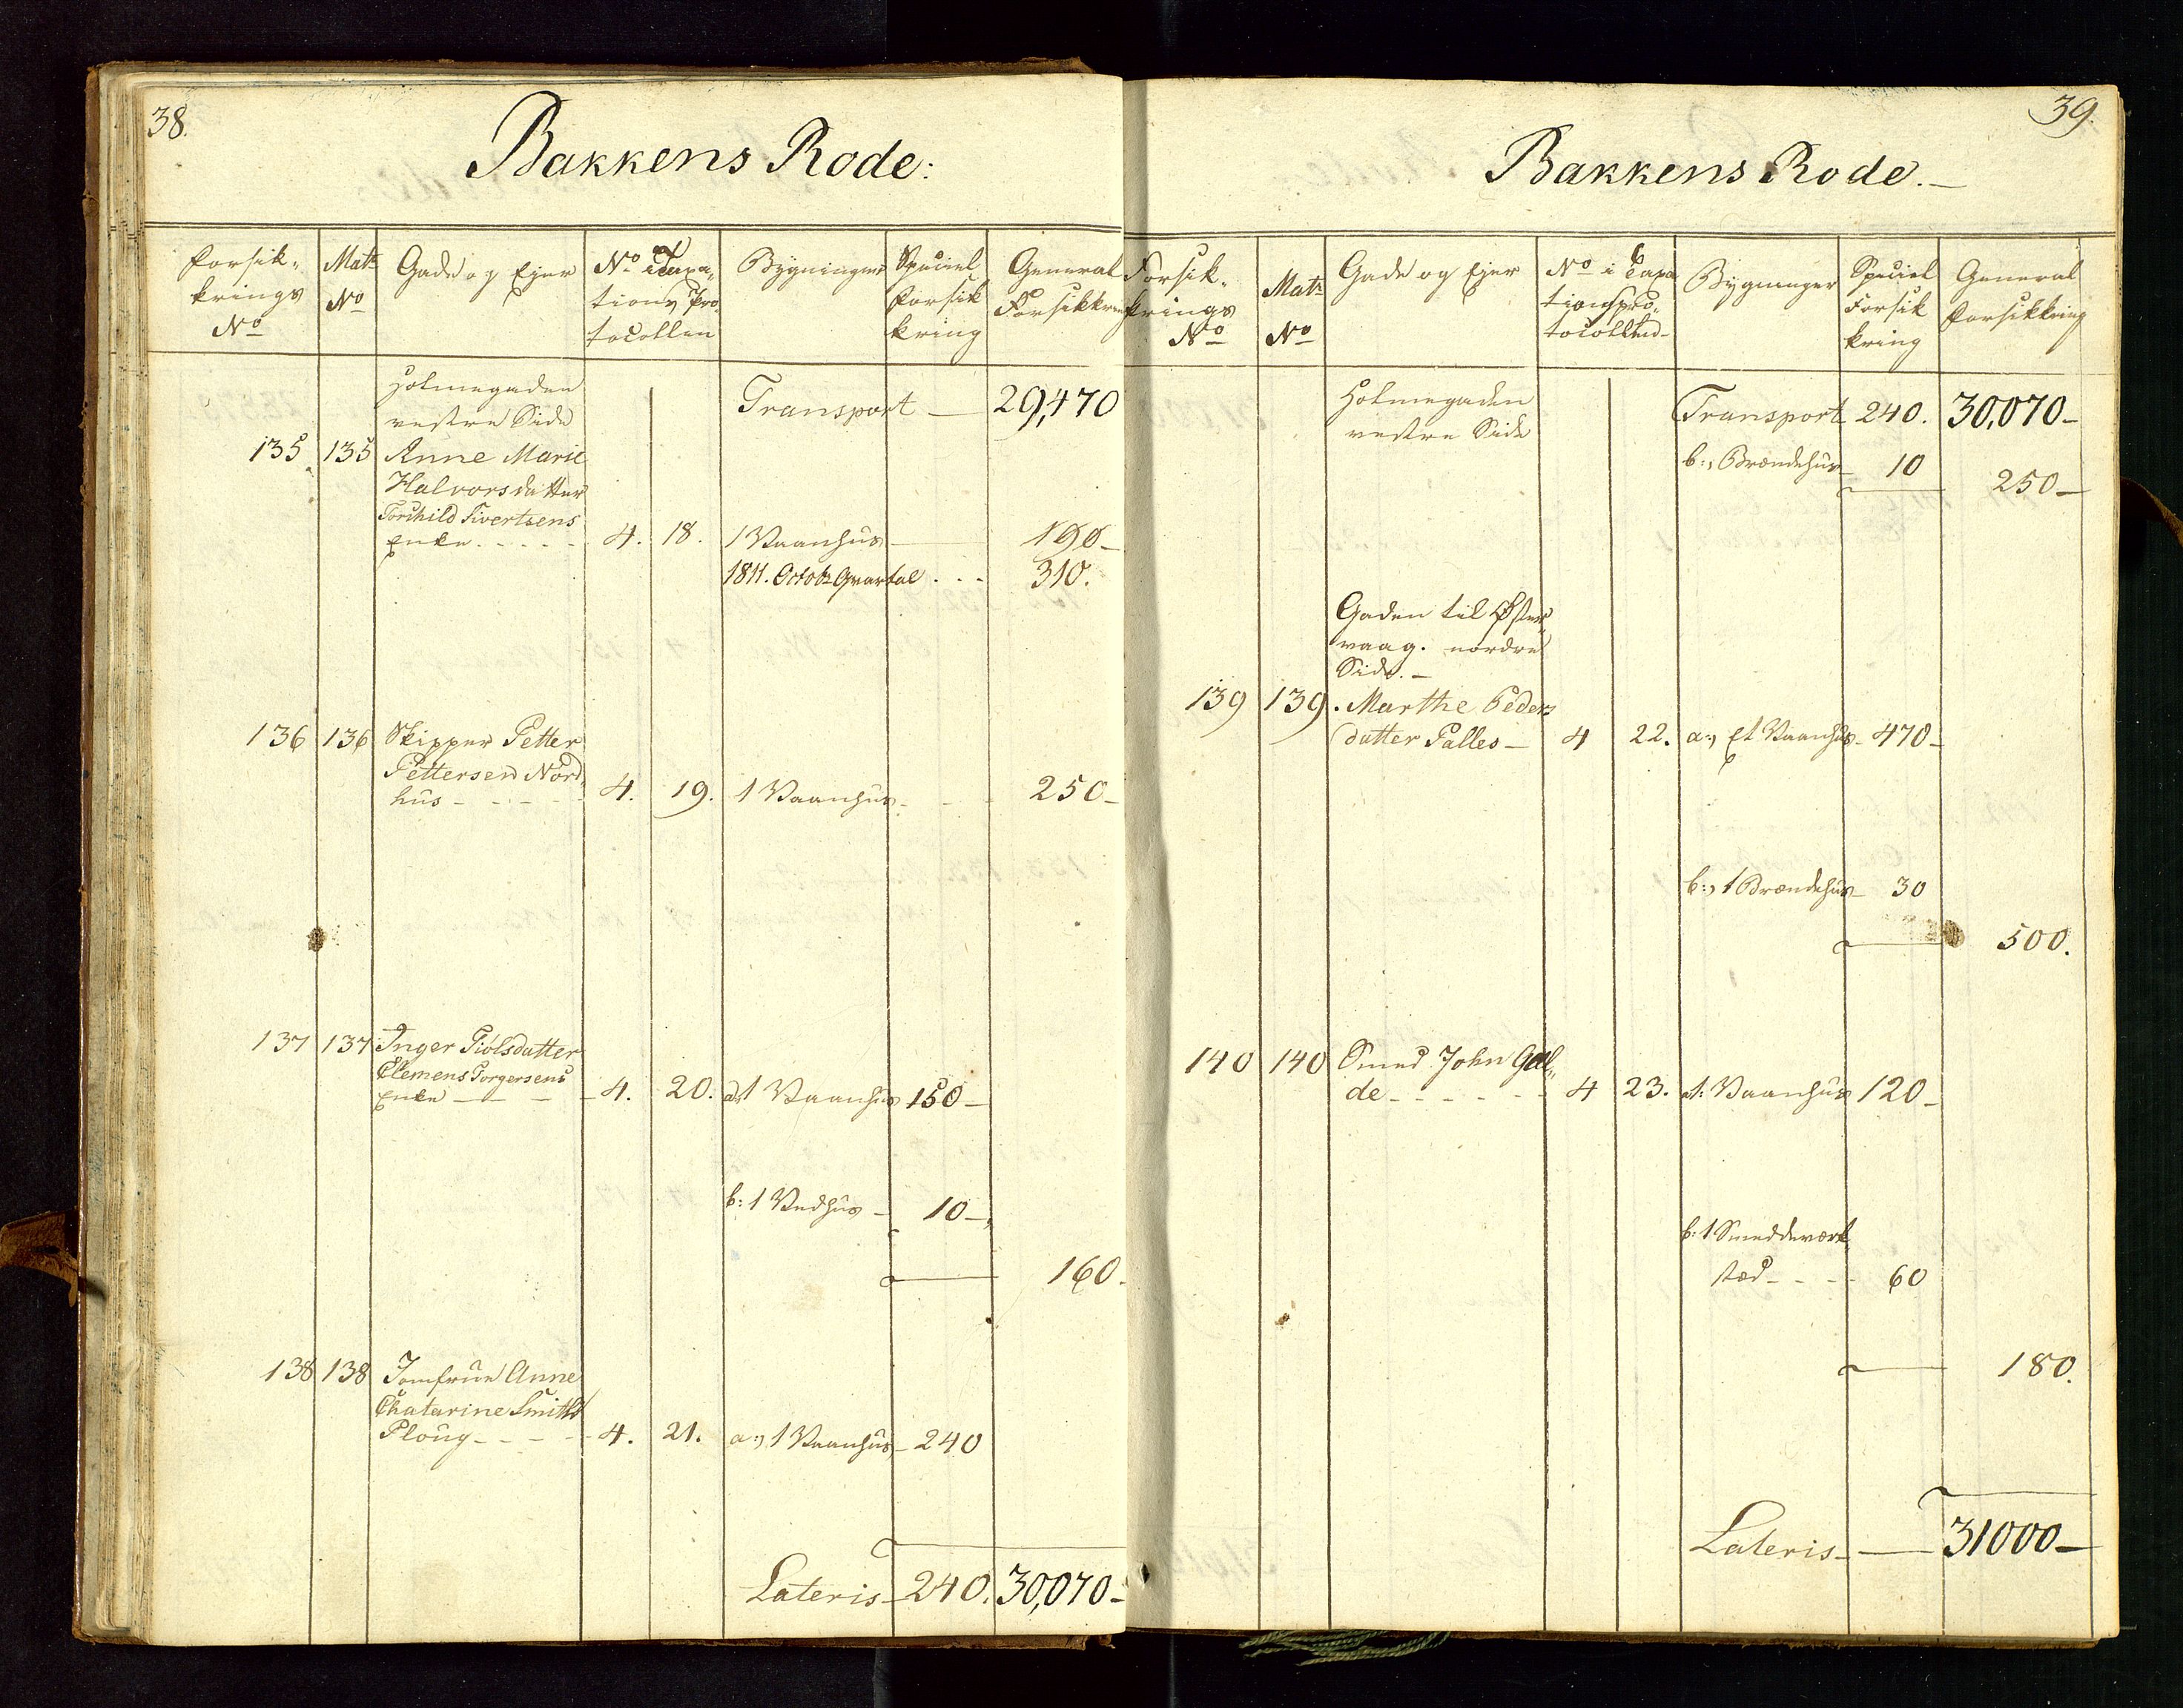 38.
Bakkens Rode:
Forsik-
krings
No
Matr
No
Gade og Ejer
No i Taxa-
tions Pro-
tocollen
Bygninger
Speciel
Forsik
kring
General
Forsikkring
Holmegaden
vestre Side
Transport — 29,470
135 135 Anne Marie
Halvorsdatter
Torchild Sivertsens
Enke - - - - 4. 18. 1 Vaanhus — 190-
1811. Octobr Qvartal - - - 310.
136 136 Skipper Petter
Pettersen Nord-
hus - - - - 4. 19. 1 Vaanhus - - - 250-
137 137 Inger Tiölsdatter
Clemens Torgersens
Enke — — - 4. 20. a: 1 Vaanhus 150-
b: 1 Vedhus - 10-
160.
138 138 Jomfrue Anne
Chatarine Smith
Ploug - - - - 4. 21. a:, 1 Vaanhus - 240
Lateris - 240. 30,070-
39.
Bakkens Rode.-
Forsik-
krings
No
Matr
No
Gade og Ejer
No i Taxa
tionspro-
tocollen-
Bygninger
Speciel
Forsik
kring
General
Forsikkring
Holmegaden
vestre Side
Transport 240. 30,070-
b:, Brændehus - 10
250-
Gaden til Øster-
vaag. nordre
Side.-
139 139. Marthe Peders
datter Palles - 4 22. a:, Et Vaanhus - 470-
b:, 1 Brændehus - 30
500.
140 140 Smed John Gal-
de - - - - - - 4 23. a: 1 Vaanhus 120-
b: 1 Smeddeværk-
sted - - - - 60
180.
Lateris - — 31000-